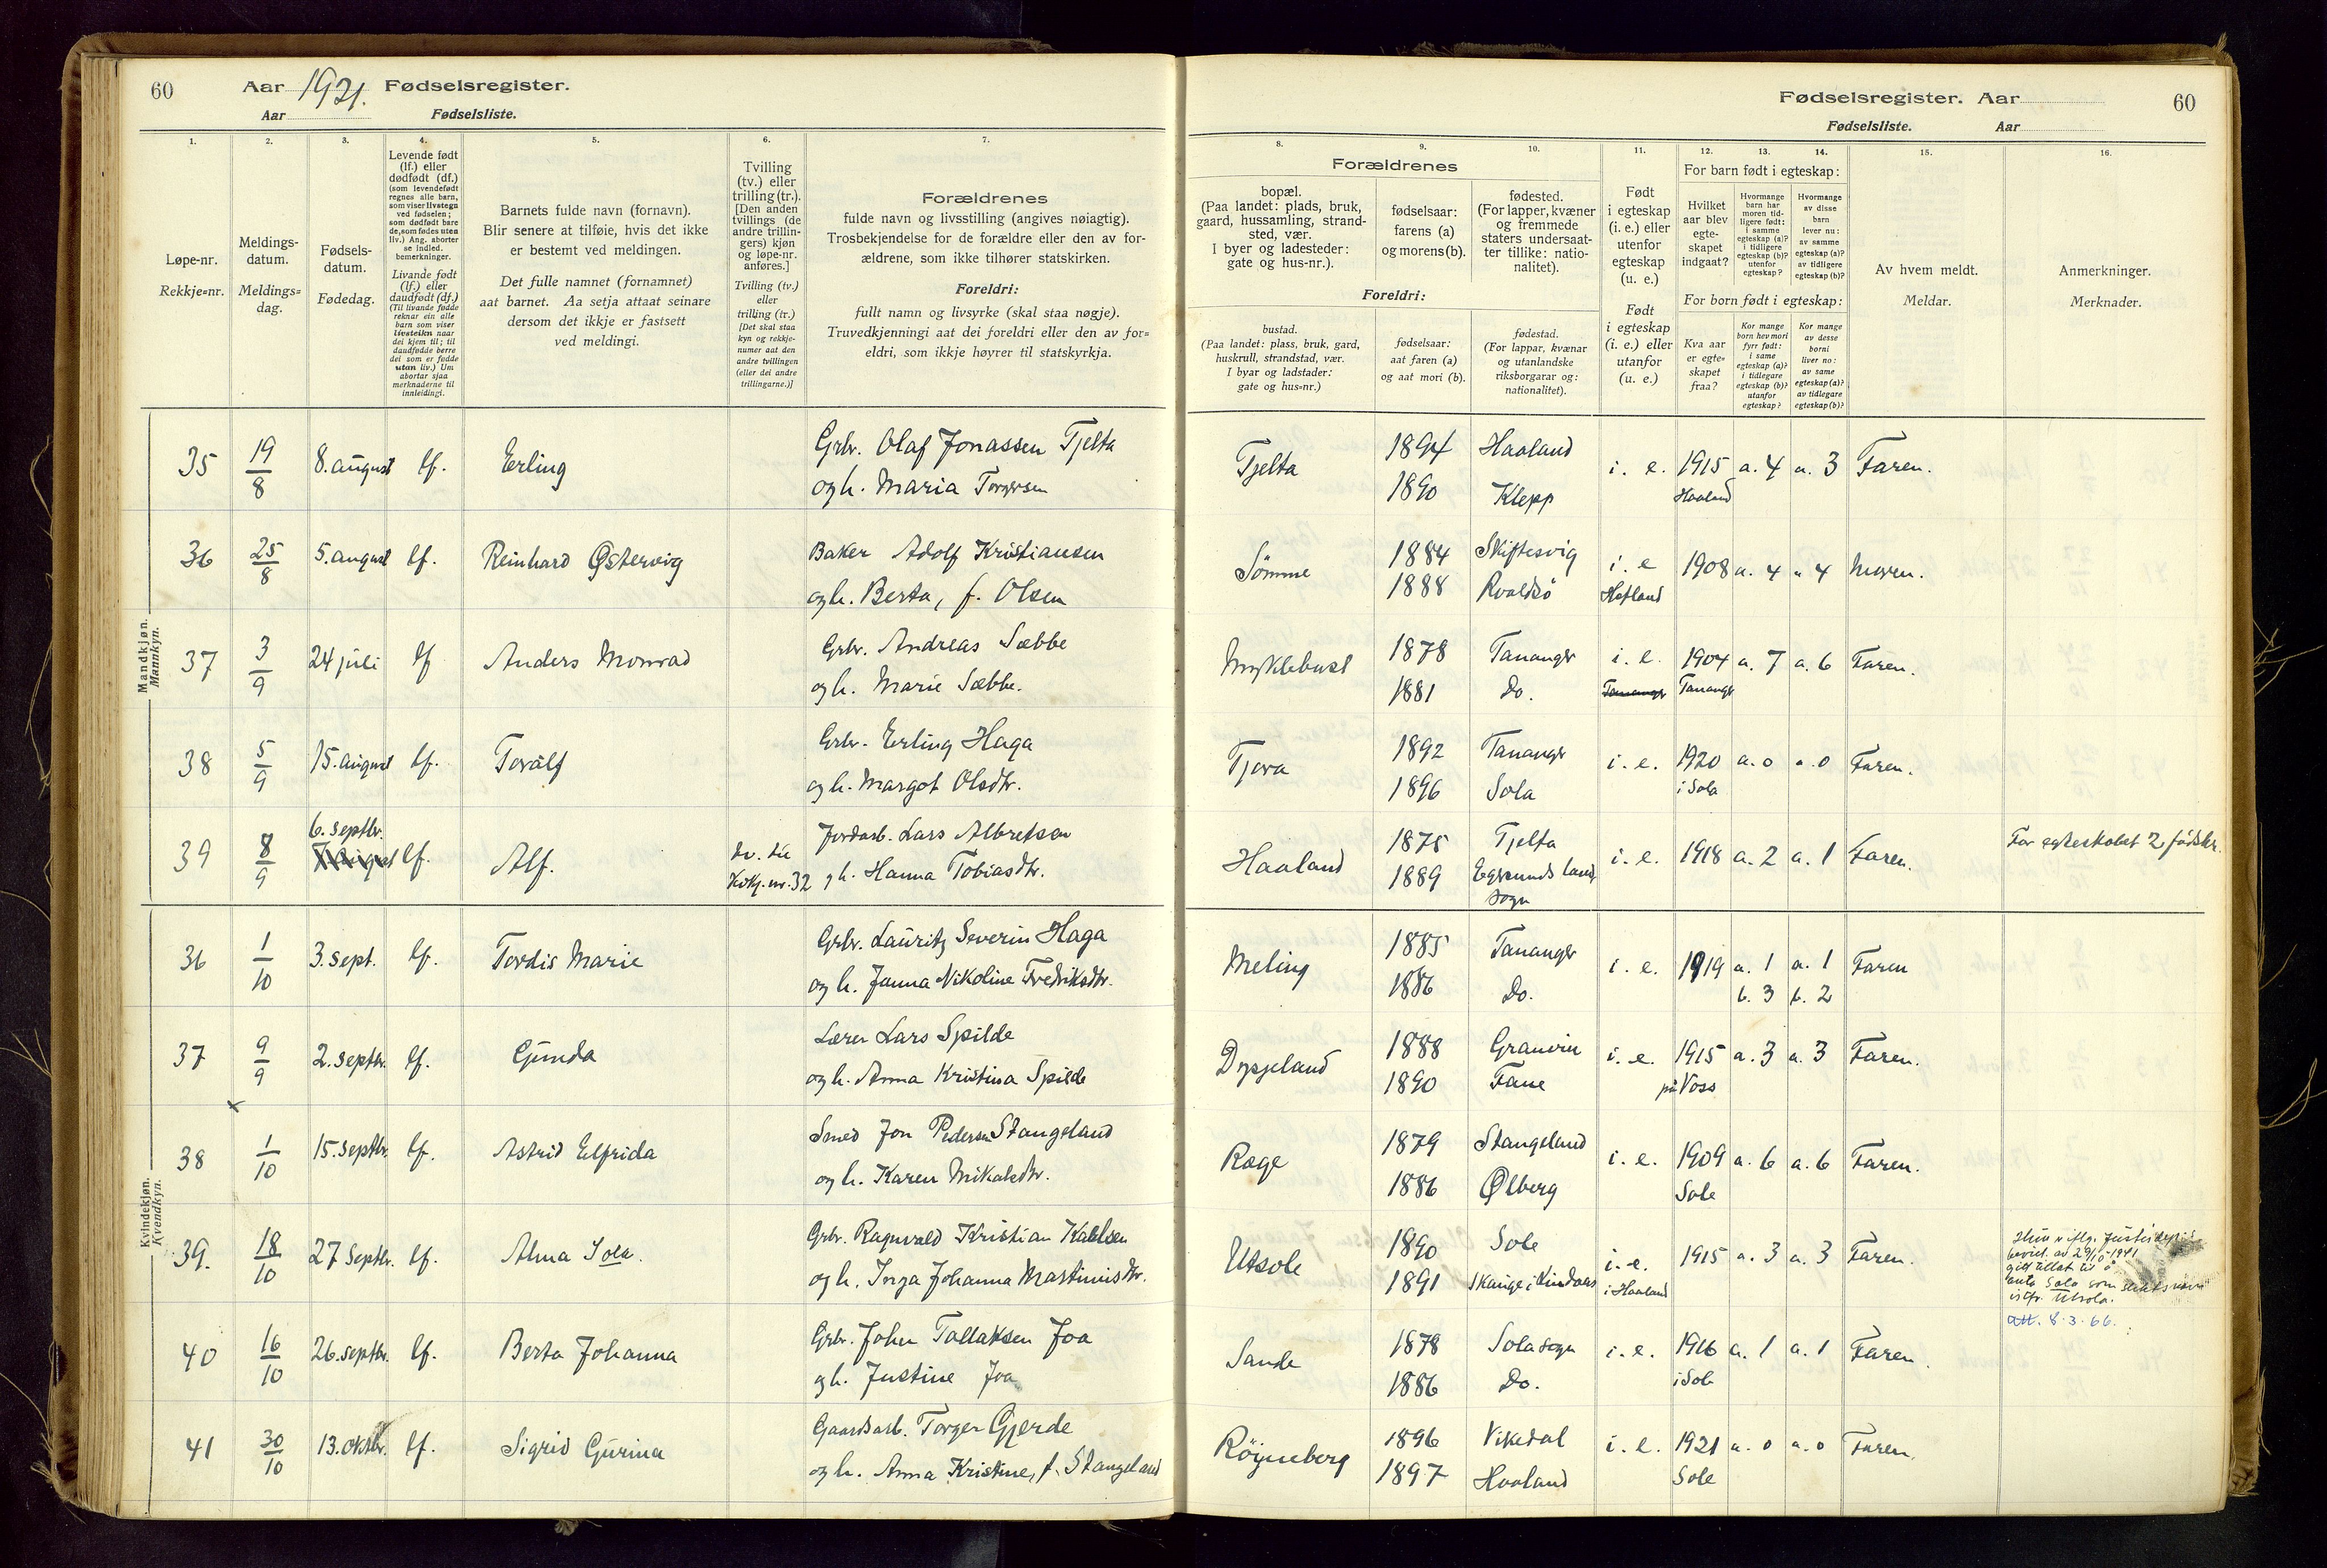 60
Aar 1921. Fødselsregister.
Aar Fødselsliste.
Fødselsregister. Aar
60
Fødselsliste. Aar
1. 2. 3. 4. 5. 6. 7.
Løpe-nr.
Rekkje=nr.
Meldings-
datum.
Meldings=
dag.
Fødsels-
datum.
Fødedag.
Levende født
(lf.) eller
dødfødt (df.)
(som levendefødt
regnes alle barn,
som viser livstegn
ved fødselen;
som dødfødt bare
de, som fødes uten
liv.) Ang. aborter
se indled.
bemerkninger.
Livande født
(lf.) eller
daudfødt (df.)
(Til livande fødde
reknar ein alle
barn som viser
livsteikn naar
dei kjem til; til
daudfødde berre
dei som er fødde
utan liv.) Um
abortar sjaa
merknaderne til
innleidingi.
Barnets fulde navn (fornavn).
Blir senere at tilføie, hvis det ikke
er bestemt ved meldingen.
Det fulle namnet (fornamnet)
aat barnet. Aa setja attaat seinare
dersom det ikkje er fastsett
ved meldingi.
Tvilling
(tv.) eller
trilling (tr.).
[Den anden
tvillings (de
andre trillin-
gers) kjøn
og løpe-nr.
anføres.]
Tvilling (tv.)
eller
trilling (tr.)
[Det skal staa
kyn og rekkje-
numer aat den
andre tvillingen
(eller dei andre
trillingarne.)]
Forældrenes
fulde navn og livsstilling (angives nøiagtig).
Trosbekjendelse for de forældre eller den av for-
ældrene, som ikke tilhører statskirken.
Foreldri:
fullt namn og livsyrke (skal staa nøgje).
Truvedkjenningi aat dei foreldri eller den av for=
eldri, som ikkje høyrer til statskyrkja.
8. 9. 10. 11. 12. 13. 14. 15. 16.
Forældrenes
bopæl.
(Paa landet: plads, bruk,
gaard, hussamling, strand-
sted, vær.
I byer og ladesteder:
gate og hus-nr.).
fødselsaar:
farens (a)
og morens (b).
fødested.
(For lapper, kvæner
og fremmede
staters undersaat-
ter tillike: natio-
nalitet).
Foreldri:
bustad.
(Paa landet: plass, bruk, gard,
huskrull, strandstad, vær.
I byar og ladstader:
gate og hus=nr.)
fødselsaar:
aat faren (a)
og aat mori (b).
fødestad.
(For lappar, kvænar
og utanlandske
riksborgarar og:
nationalitet).
Født
i egteskap
(i. e.) eller
utenfor
egteskap
(u. e.)
Født
i egteskap
(i. e.) eller
utanfor
egteskap
(u. e.)
For barn født i egteskap:
Hvilket
aar blev
egte-
skapet
indgaat?
Hvormange
barn har
moren tid-
ligere født:
i samme
egteskap (a)?
i tidligere
egteskap (b)?
utenfor
egteskap?
Hvormange
av disse
barn
lever nu:
av samme
egteskap (a)?
av tidligere
egteskap (b)?
For born født i egteskap:
Kva aar
er egte=
skapet
fraa?
Kor mange
born hev mori
fyrr født:
i same
egteskap (a)?
i tidlegare
egteskap (b)?
utanfor
egteskap?
Kor mange
av desse
borni
liver no:
av same
egteskap (a)?
av tidlegare
egteskap (b)?
Av hvem meldt.
Meldar.
Anmerkninger.
Merknader.
Mandkjøn.
Mannkyn.
35 19/8 8. august lf. Erling Grbr. Olaf Jonassen Tjelta
og h. Maria Torgersen
Tjelta 1894 Haaland i. e. 1915 a. 4 a. 3 Faren.
1890 Klepp Haaland
36 25/8 5. august lf. Reinhard Østervig Baker Adolf Kristiansen
og h. Berta, f. Olsen
Sömme 1884 Skiftesvig i. e 1908 a. 4 a 4 Moren.
1888
37 3/9 24 juli lf Anders Monrad Grbr. Andreas Sæbbe
og h. Marie Sæbbe.
Myklebust 1878 Tananger i. e. 1904 a. 7 a. 6 Faren.
1881 Do. Tananger Tananger
38 5/9 15. august lf. Toralf Grbr. Erling Haga
og h. Margot Olsdtr.
Tjora 1892 Tananger i. e. 1920 a. 0 a. 0 Faren.
1896 Sola i Sola
39 8/9 6. septbr. lf. Alf. tv. til Jordarb. Lars Albretsen
Kvkj. nr. 32 og h. Hanna Tobiasdtr.
Haaland 1875 Tjelta i. e. 1918 a. 2 a. 1 Faren. Før egteskabet 2 födsler.
1889 Egersunds land
sogn
Kvindekjøn.
Kvendkyn.
36 1/10 3. sept. lf. Tordis Marie Grbr. Lauritz Severin Haga
og h. Janna Nikoline Fredriksdtr.
Meling 1885 Tananger i. e. 1919 a. 1 a. 1 Faren
1886 Do. b. 3 b. 2
37 9/9 2. septbr. lf. Gunda Lærer Lars Spilde
og h. Anna Kristina Spilde
Dysjeland 1888 Granvin i. e. 1915 a. 3 a. 3 Faren.
1890 Fane på Voss
x
38 1/10 15. septbr. lf. Astrid Elfrida Smed Jon Pedersen Stangeland
og h. Karen Mikalsdtr.
Røge 1879 Stangeland i. e. 1909 a. 6 a. 6 Faren.
1886 Ølberg Sole
39. 18/10 27 septbr. lf. Alma Sola. Grbr. Ragnvald Kristian Kahlsen
og h. Inga Johanna Martinusdtr.
Utsole 1890 Sole i. e. 1915 a. 3 a. 3 Faren.
1891 Skauge i Lindaas i Haaland
av 29/10-1941
Sola som slektsnavn
istf. Utsola.
att. 8.3.66.
40 16/10 26. septbr. lf. Berta Johanna Grbr. John Tollaksen Joa
og h. Justine Joa
Sande 1878 Sola sogn i. e. 1916 a. 1 a. 1 Faren.
1886 Do. i Sole
41 30/10 13. oktbr. lf. Sigrid Gurina Gaardsarb. Torger Gjerde
og h. Anna Kristine, f. Stangeland
Röyneberg 1896 Vikedal i. e. 1921 a. 0 a. 0 Faren.
1897 Haaland Sole